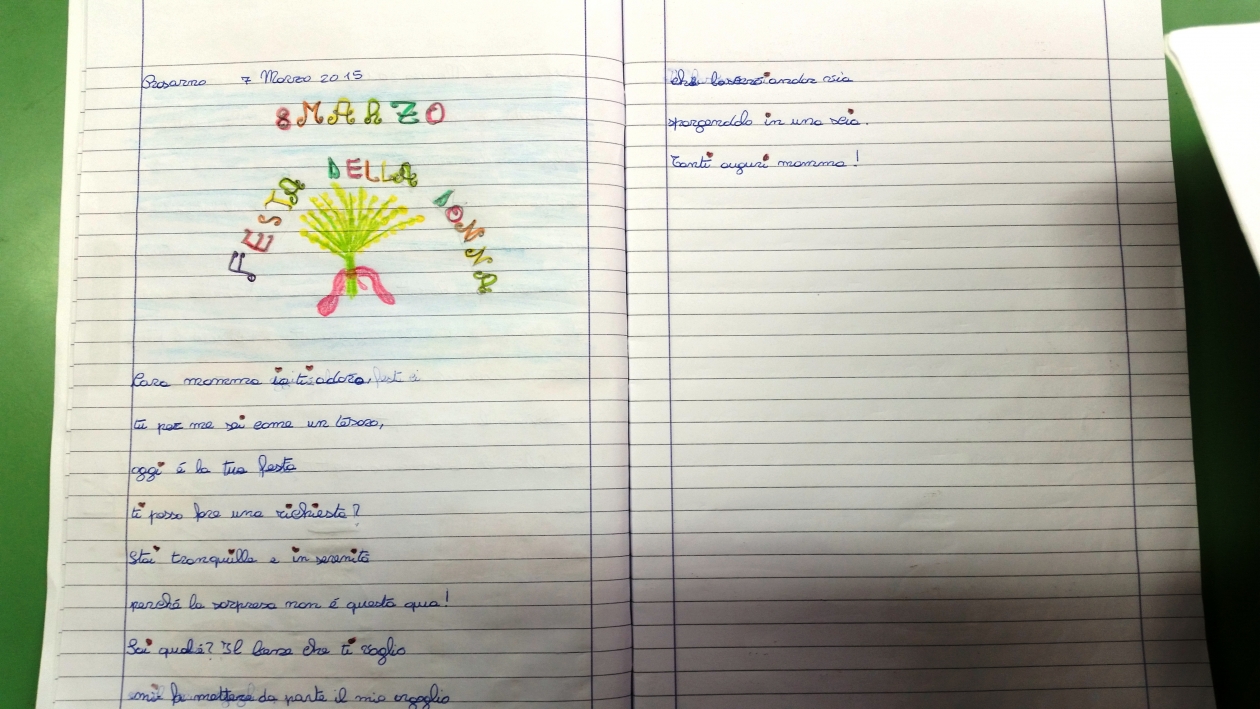 Rosarno 7 Marzo 2015
8 MARZO
FESTA DELLA DONNA
Cara mamma io ti adoro,
tu per me sei come un tesoro,
oggi é la tua festa
ti posso fare una richiesta?
Stai tranquilla e in serenità
perché la sorpresa non é questa qua!
Sai qual é? Il bene che ti voglio
mi fa mettere da parte il mio orgoglio
che lascerò andar via
spargendolo in una scia.
Tanti auguri mamma!